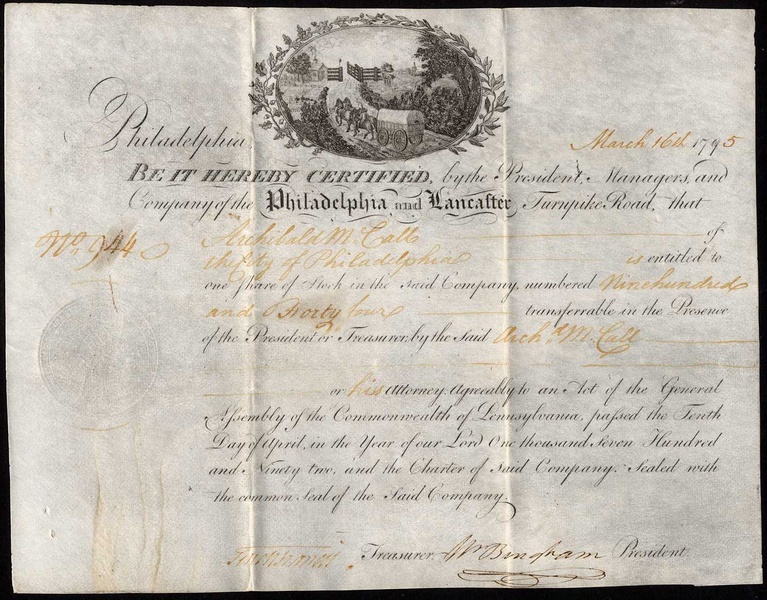 Philadelphia March 16th 1795
BE IT HEREBY CERTIFIED, by the President, Managers, and
Company of the Philadelphia and Lancaster Turnpike Road, that
Archibald McCall of
No. 944
the City of Philadelphia is entitled to
one Share of Stock in the said Company, numbered Nine hundred
and Forty four transferrable in the Presence
of the President or Treasurer, by the Said Archd McCall
or his Attorney. Agreeably to an Act of the General
Assembly of the Commonwealth of Pennsylvania, passed the Tenth
Day of April, in the Year of our Lord One thousand Seven Hundred
and Ninety two, and the Charter of said Company. Sealed with
the common Seal of the Said Company.
Treasurer. Wm Bingham President.